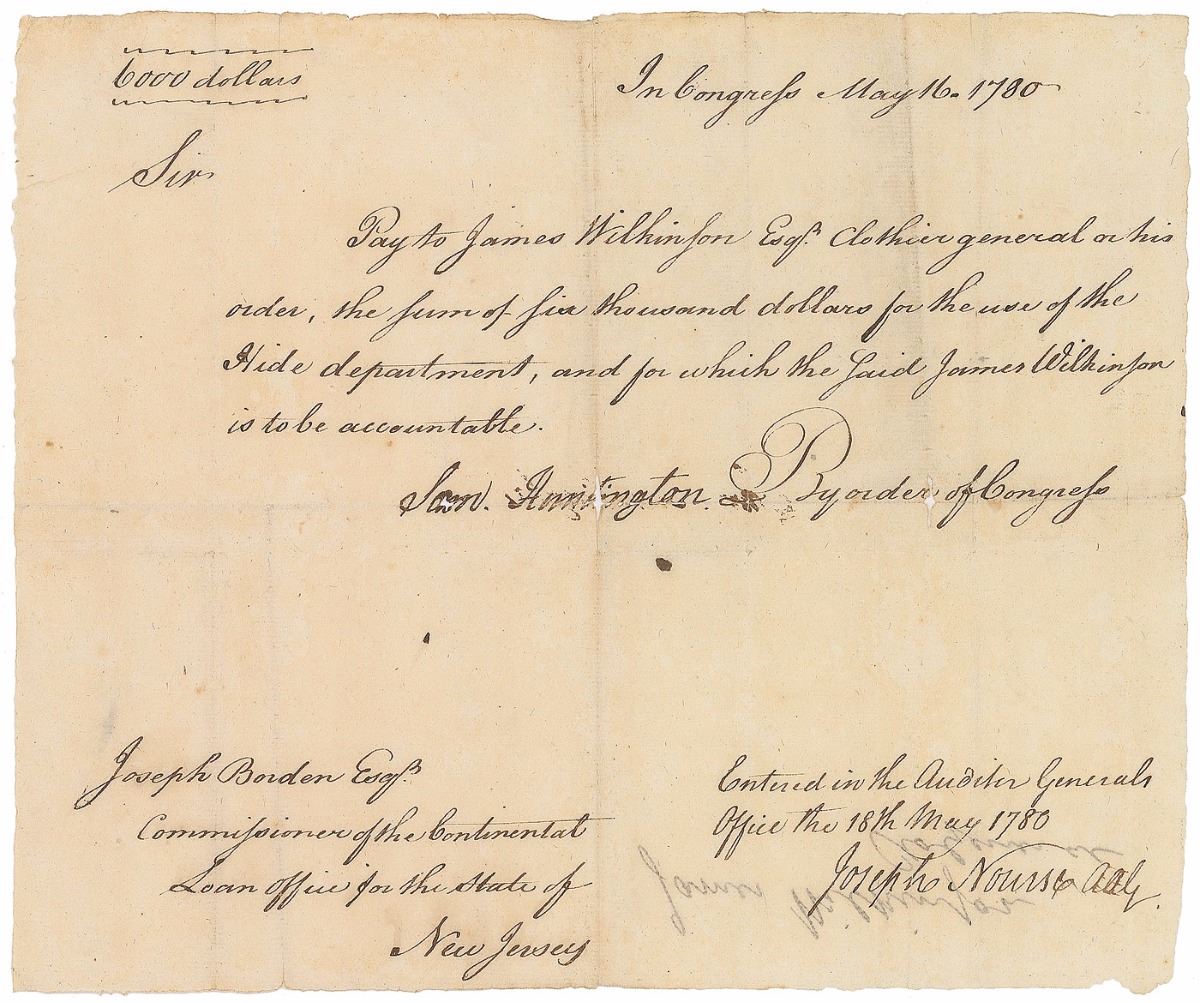 6000 dollars
In Congress May 16. 1780
Sir
Pay to James Wilkinson Esqr. Clothier general or his
order, the sum of six thousand dollars for the use of the
Hide department, and for which the said James Wilkinson
is to be accountable.
Sam. Huntington. By order of Congress
Joseph Borden Esqr.
Commissioner of the Continental
Loan office for the State of
New Jersey
Entered in the Auditor Generals
Office the 18th May 1780
Joseph Nourse
James Wilkinson